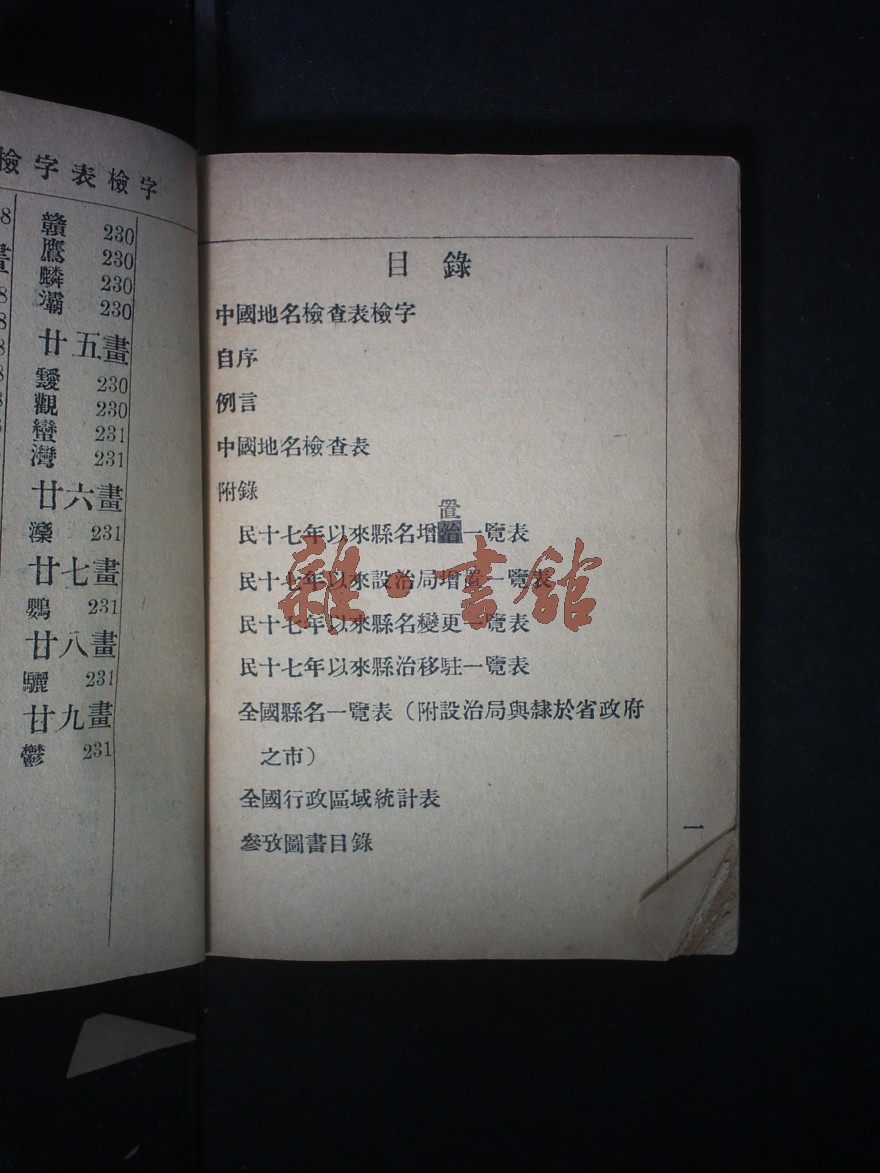 檢字表檢字
8
贛 230
鷹 230
麟 230
灞 230
廿五畫
靉 230
觀 230
蠻 231
灣 231
廿六畫
灤 231
廿七畫
鸚 231
廿八畫
驪 231
廿九畫
鬱 231
目錄
中國地名檢查表檢字
自序
例言
中國地名檢查表
附錄
置
民十七年以來縣名增治一覽表
民十七年以來設治局增置一覽表
民十七年以來縣名變更一覽表
民十七年以來縣治移駐一覽表
全國縣名一覽表（附設治局與隸於省政府
之市）
全國行政區域統計表
參攷圖書目錄
一
雜·書館